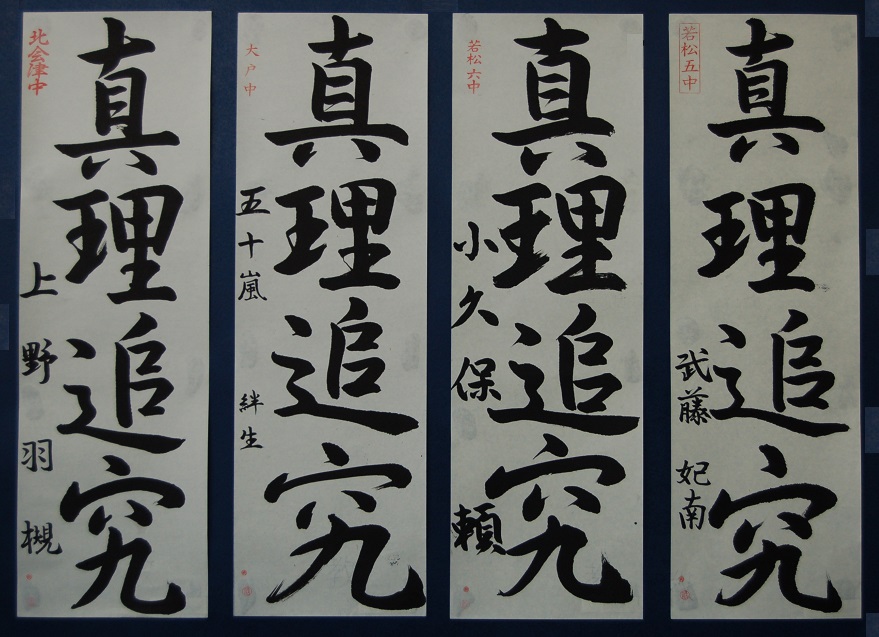 若松五中
真理追究
武藤 妃南
若松六中
真理追究
小久保 頼
大戸中
真理追究
五十嵐 絆生
北会津中
真理追究
上野 羽槻